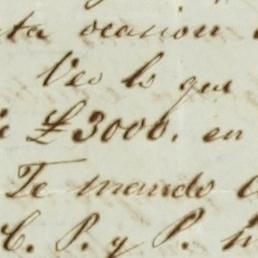 ta ocasion
Veo lo que
£3000. en
Te mando
C. P. y P.